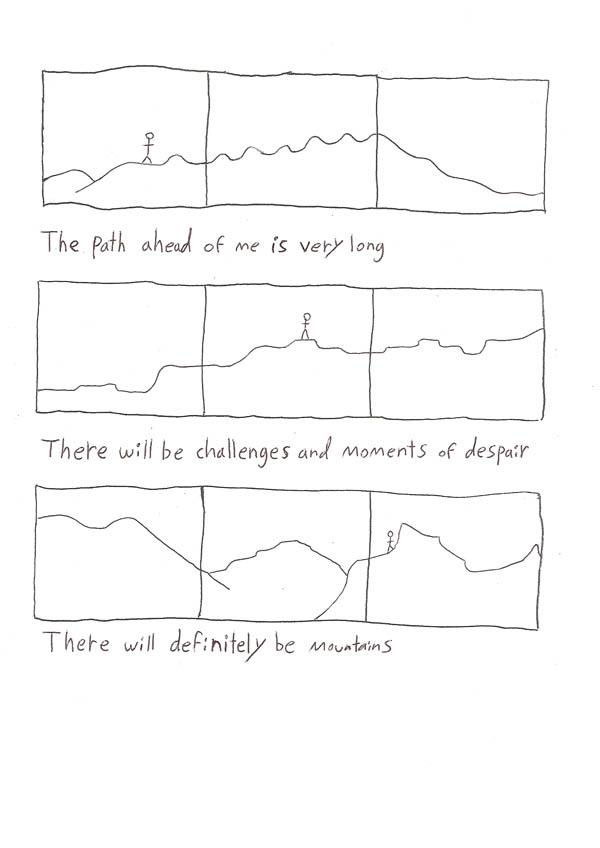 The path ahead of me is very long
There will be challenges and moments of despair
There will definitely be mountains